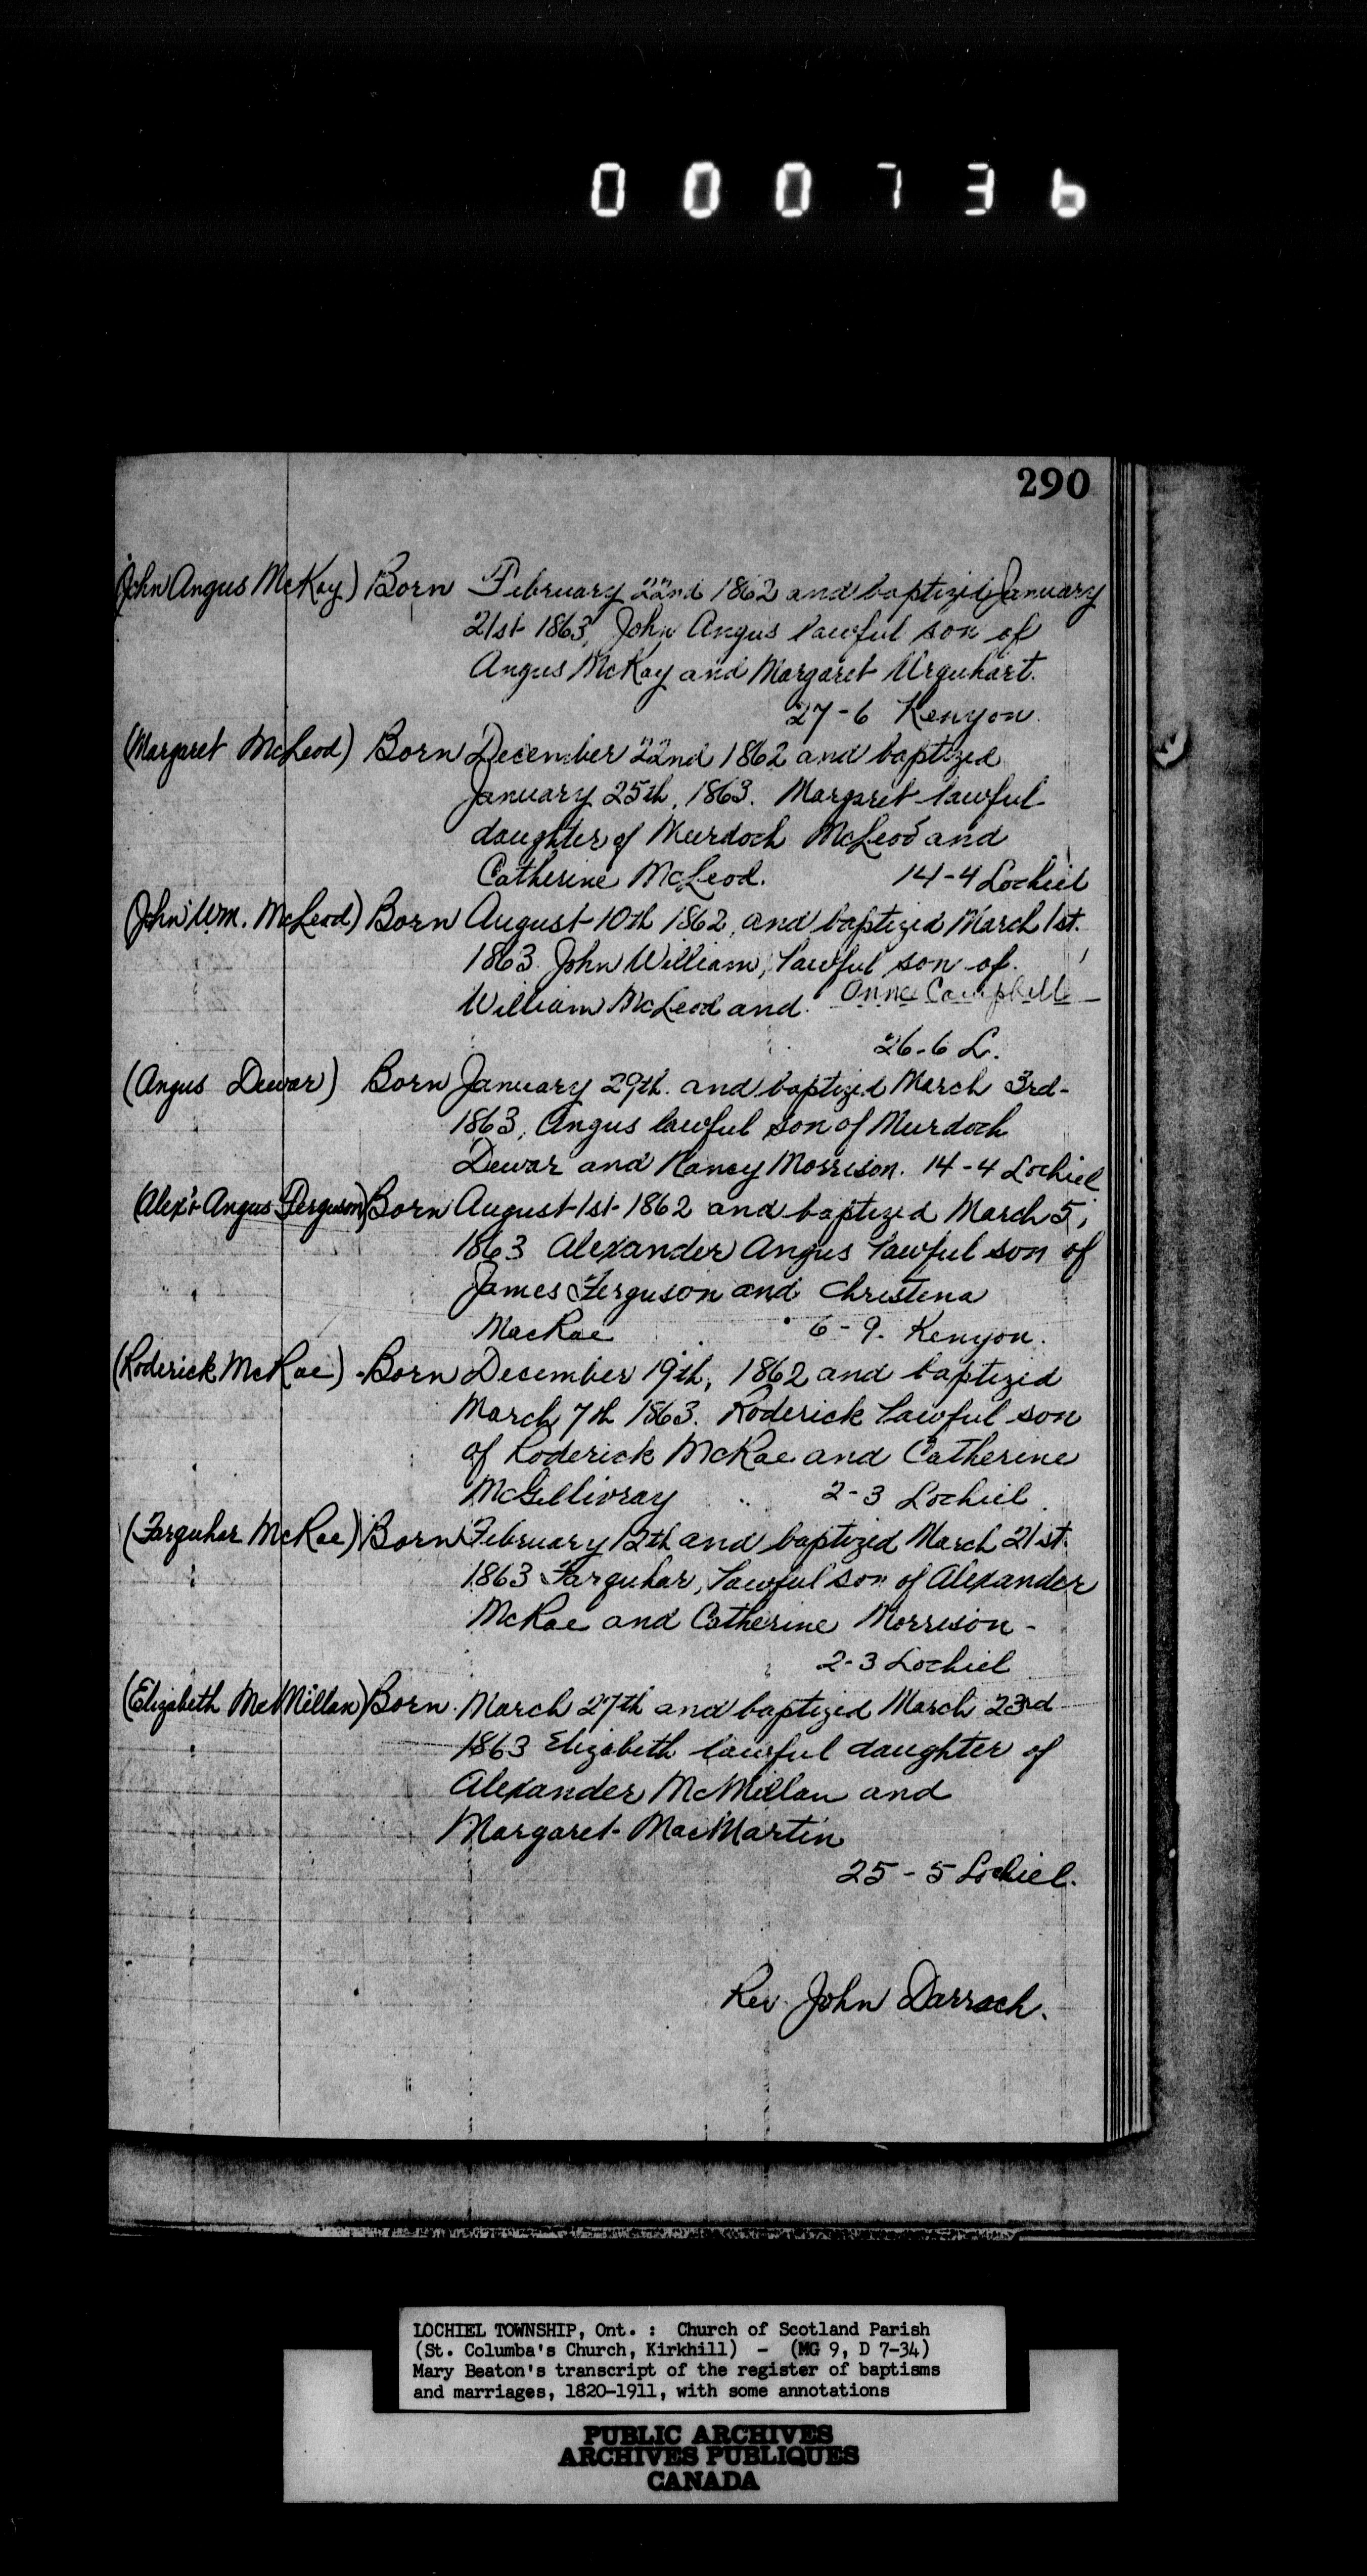 000736
290
(John Angus McKay) Born February 22nd 1862 and baptized January
21st 1863, John Angus lawful son of
Angus McKay and Margaret Urquhart.
27-6 Kenyon.
(Margaret McLeod) Born December 22nd 1862 and baptized
January 25th, 1863. Margaret lawful
daughter of Murdoch McLeod and
Catherine McLeod. 14-4 Lochiel
(John Wm. McLeod) Born August 10th 1862, and baptized March 1st.
1863 John William, lawful son of
William McLeod and Anne Campbell
26-6 L.
(Angus Dewar) Born January 29th. and baptized March 3rd-
1863, Angus lawful son of Murdoch
Dewar and Nancy Morrison. 14-4 Lochiel
(Alex'r Angus Ferguson) Born August 1st 1862 and baptized March 5,
1863 Alexander Angus lawful son of
James Ferguson and Christena
MacRae 6-9. Kenyon.
(Roderick McRae) Born December 19th, 1862 and baptized
March 7th 1863. Roderick lawful son
of Roderick McRae and Catherine
McGillivray 2-3 Lochiel.
(Farquhar McRae) Born February 12th and baptized March 21st.
1863 Farquhar, lawful son of Alexander
McRae and Catherine Morrison -
2-3 Lochiel
(Elizabeth MacMillan) Born March 27th and baptized March 23rd
1863 Elizabeth lawful daughter of
Alexander McMillan and
Margaret MacMartin
25-5 Lochiel.
Rev. John Darrach.
LOCHIEL TOWNSHIP, Ont. : Church of Scotland Parish
(St. Columba's Church, Kirkhill) - (MG 9, D 7-34)
Mary Beaton's transcript of the register of baptisms
and marriages, 1820-1911, with some annotations
PUBLIC ARCHIVES
ARCHIVES PUBLIQUES
CANADA